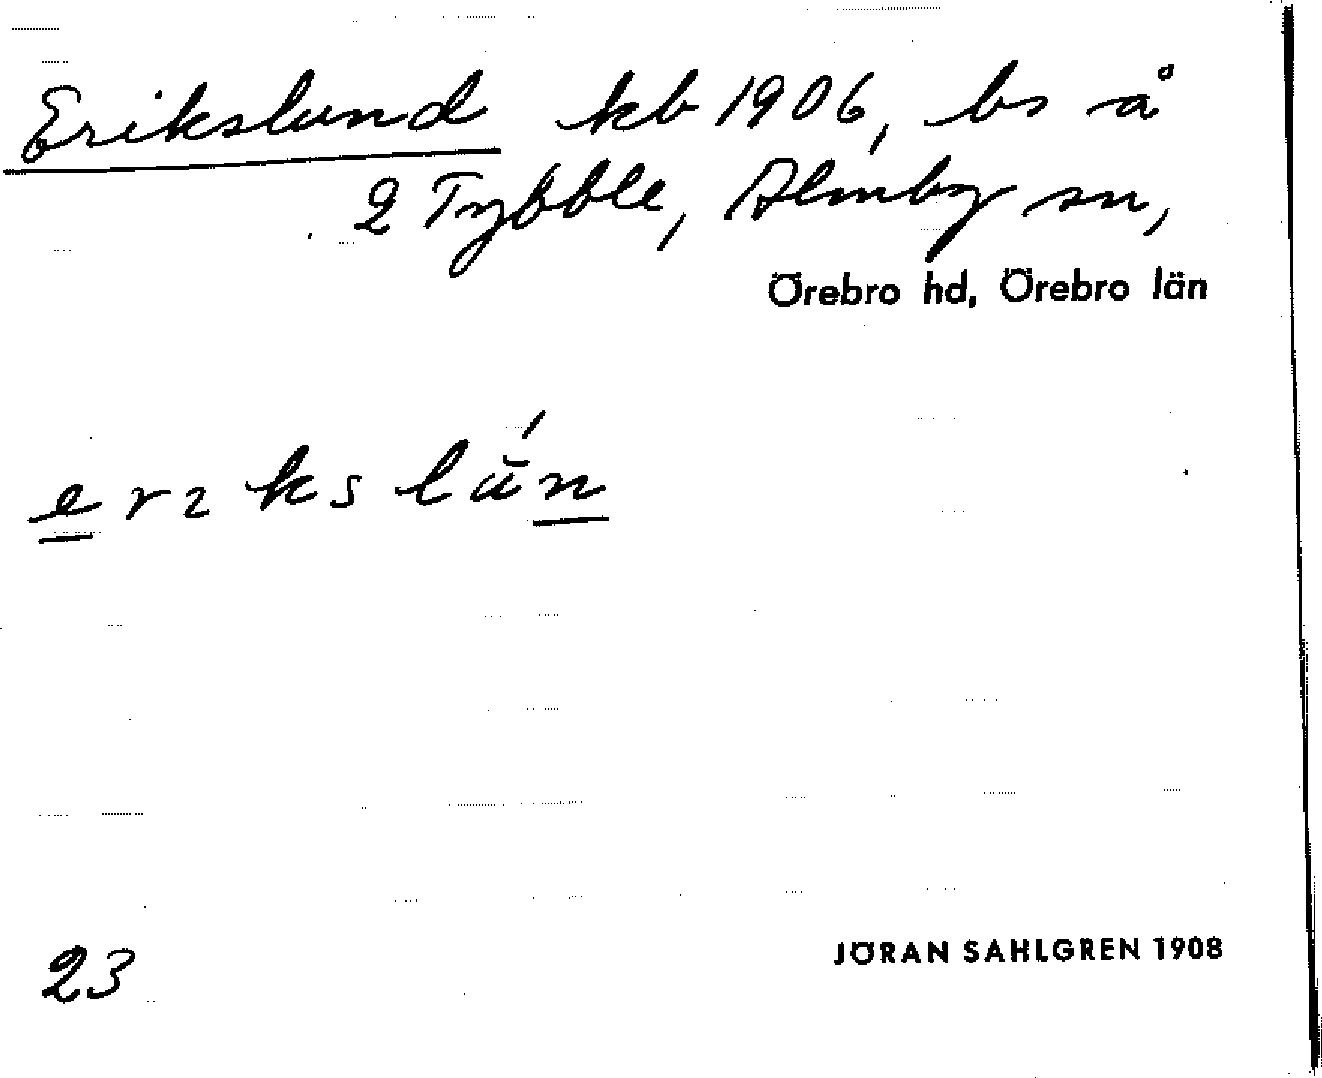 Erikslund kb 1906, bs å
2 Tybble, Almby sn,
Örebro hd, Örebro län
erɩkslu̇́n
23
JÖRAN SAHLGREN 1908